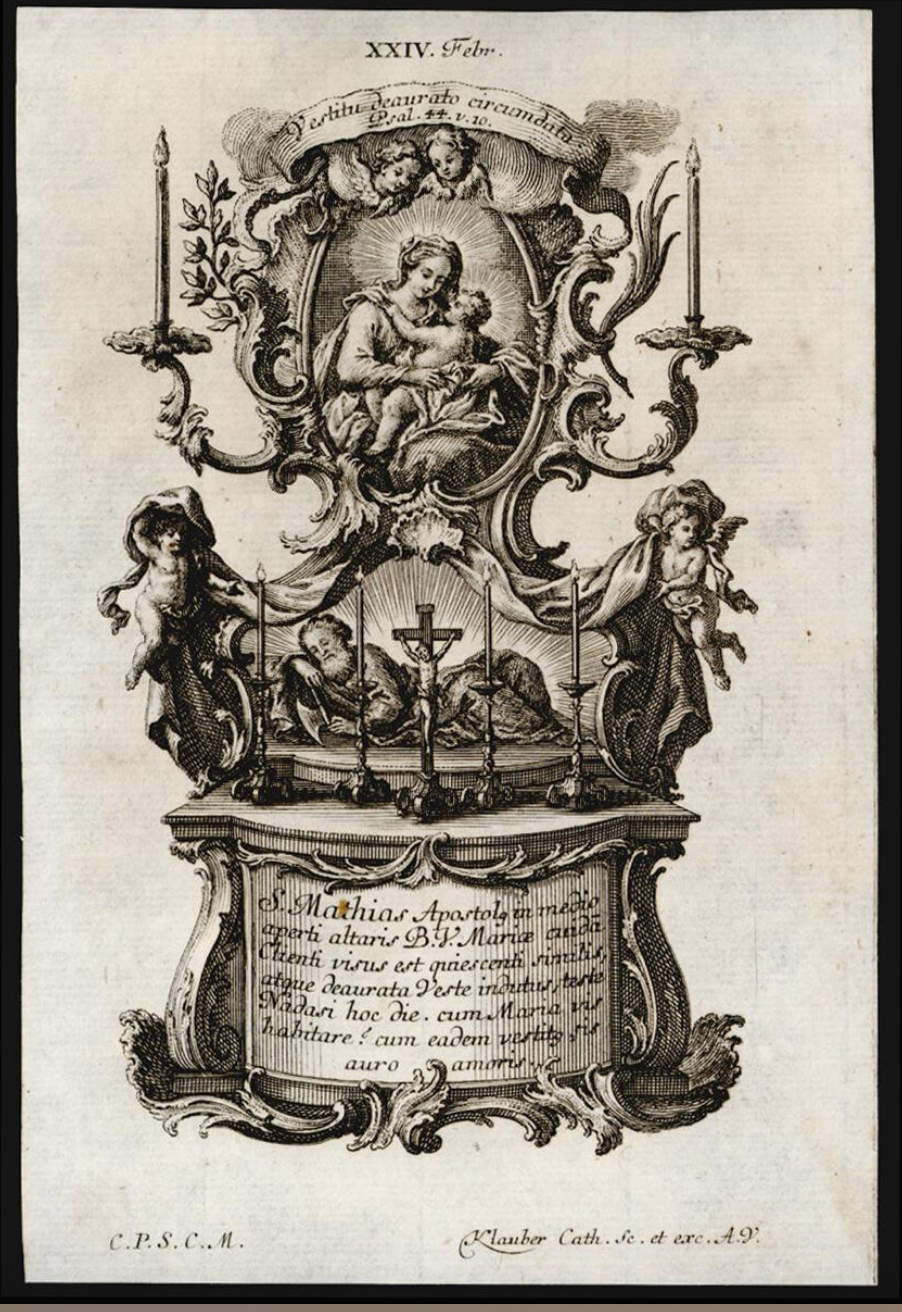 XXIV. Febr.
Vestitu deaurato circumdata
Psal. 44. v. 10.
S. Mathias Apostolꝯ in medio
aperti altaris B. V. Mariæ cuidā
Clienti visus est quiescenti similis,
atque deaurata Veste indutus, teste
Nádasi hoc die. cum Maria vis
habitare? cum eadem vestitꝯ sis
auro amoris.
C. P. S. C. M.
Klauber Cath. Sc. et exc. A. V.